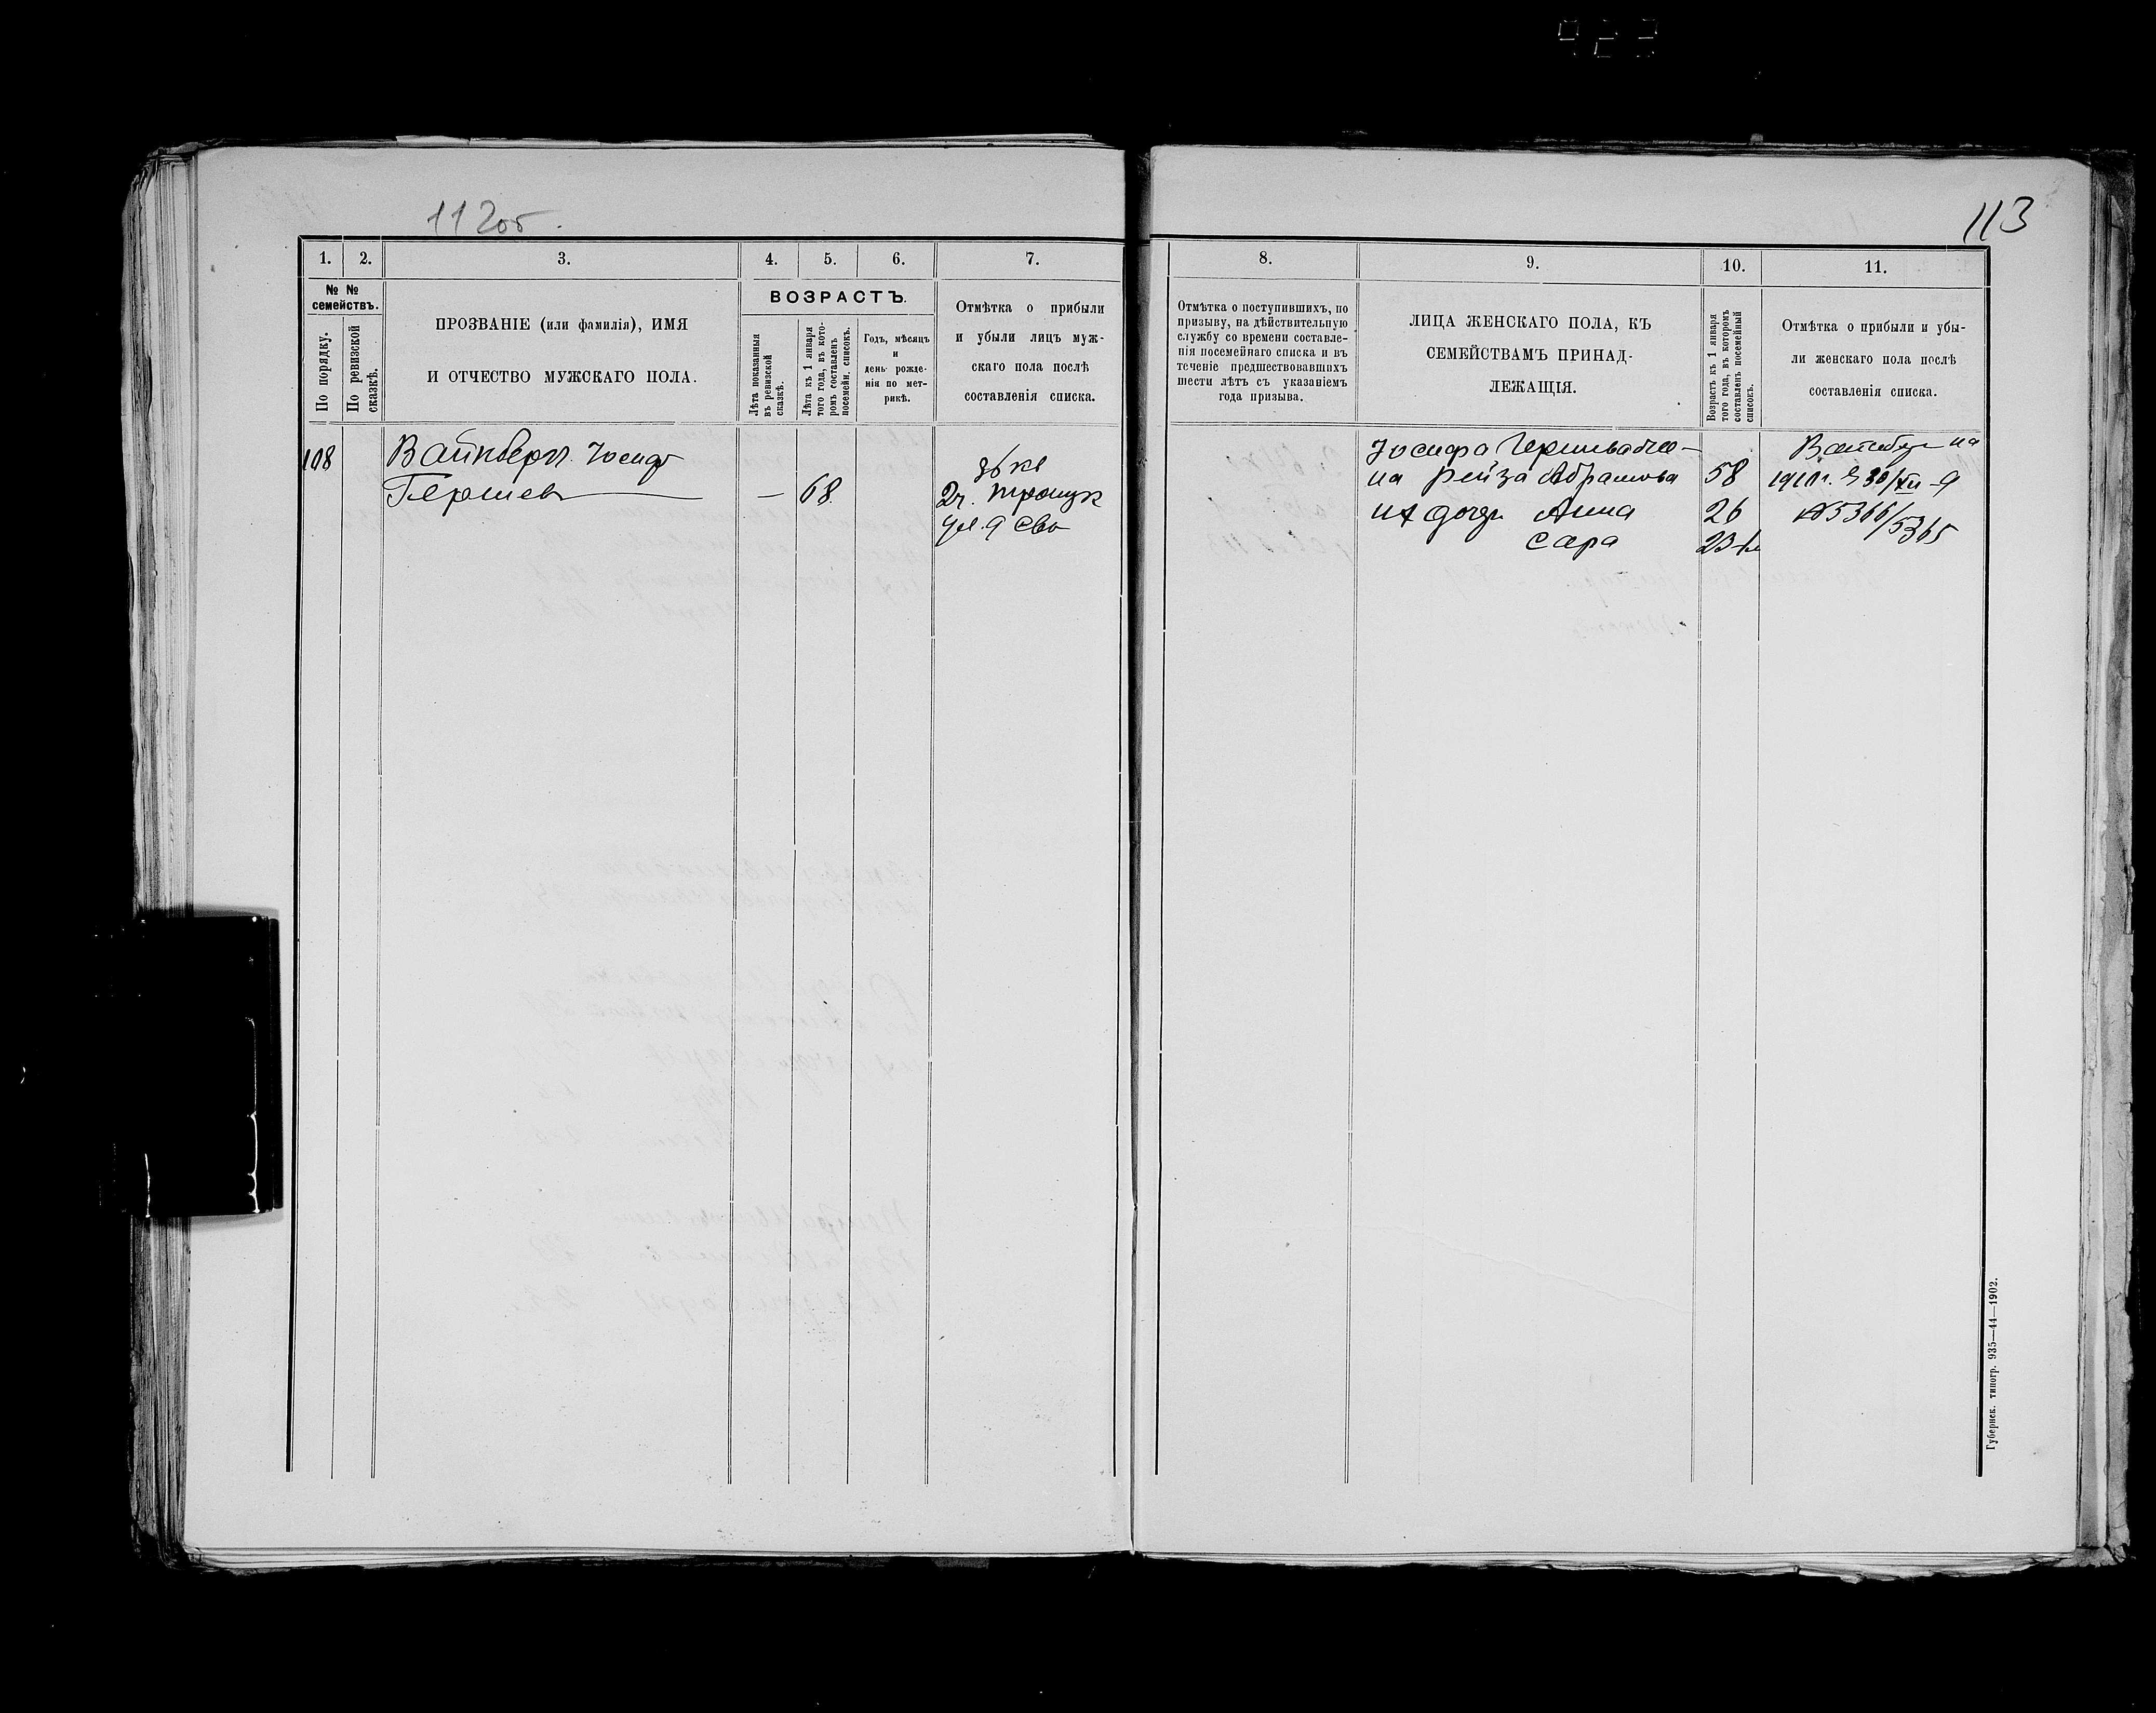 423
112об.
113
1.
2.
3.
4.
5.
6.
7.
№ №
семействъ.
По порядку.
По ревизской
сказкѣ.
ПРОЗВАНІЕ (или фамилія), ИМЯ
И ОТЧЕСТВО МУЖСКАГО ПОЛА.
ВОЗРАСТЪ.
Лѣта показанныя
въ ревизской
сказкѣ.
Лѣта къ 1 января
того года, въ кото-
ромъ составленъ
посемейн. списокъ.
Годъ, мѣсяцъ
и
день рожде-
нія по мет-
рикѣ.
Отмѣтка о прибыли
и убыли лицъ муж-
скаго пола послѣ
составленія списка.
108
Вайнберг Іосиф
Гершев — 68.
36 кв
2ч.
ул. 9
8.
9.
10.
11.
Отмѣтка о поступившихъ, по
призыву, на дѣйствительную
службу со времени составле-
нія посемейнаго списка и въ
теченіе предшествовавшихъ
шести лѣтъ съ указаніемъ
года призыва.
ЛИЦА ЖЕНСКАГО ПОЛА, КЪ
СЕМЕЙСТВАМЪ ПРИНАД-
ЛЕЖАЩІЯ.
Возрастъ къ 1 января
того года, въ которомъ
составленъ посемейный
списокъ.
Отмѣтка о прибыли и убы-
ли женскаго пола послѣ
составленія списка.
Іосифа Гершева же-
на Рейза Абрамова 58
их дочери Анна 26
Сара 23
на
1910 г. 30/XII - 9
№5366/5365
Губернск. типогр. 935—44—1902.